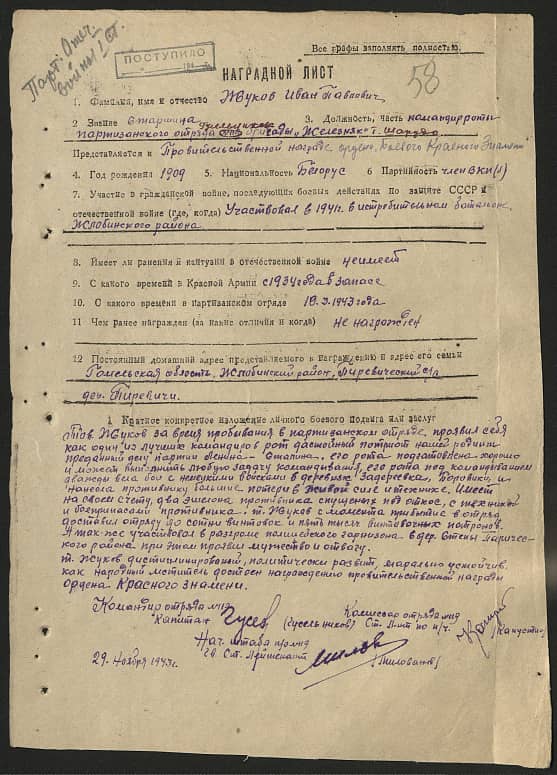 Парт. Отеч.
войны I ст.
ПОСТУПИЛО
Все графы заполнять полностью.
58
НАГРАДНОЙ ЛИСТ
1. Фамилия, имя и отчество Жуков Иван Павлович
2 Звание старшина 3. Должность, часть командир роты
партизанского отряда бригады „Железняк"
Представляется к Правительственной награде орден Боевого Красного Знамени
4. Год рождения 1909 5. Национальность Белорус 6 Партийность член ВКП(б)
7. Участие в гражданской войне, последующих боевых действиях по защите СССР и
отечественной войне (где, когда) Участвовал в 1941г. в истребительном батальоне
Жлобинского района
8. Имеет ли ранения и контузии в отечественной войне неимеет
9. С какого времени в Красной Армии с 1934 года в запасе
10. С какого времени в партизанском отряде 10.3.1943 года
11 Чем ранее награжден (за какие отличия и когда) не награжден
12 Постоянный домашний адрес представляемого к награждению и адрес его семьи
Гомельская область, Жлобинский район, Пиревический с/с
дер. Пиревичи.
1 Краткое конкретное изложение личного боевого подвига или заслуг
Тов. Жуков за время пребывания в партизанском отряде, проявил себя
как один из лучших командиров рот достойный патриот нашей родины
преданный делу партии Ленина - Сталина, его рота подготовлена хорошо
и может выполнить любую задачу командования, его рота под командованием
дважды вела бои с немецкими войсками в деревнях Задереевка, Боровики, и
нанесла противнику большие потери в живой силе и технике. Имеет
на своем счету, два эшелона противника спущенных под откос, с техникой
и боеприпасами противника. т. Жуков с момента прибытие в отряд
доставил отряду до сотни винтовок и пять тысяч винтовочных патронов.
А так-же участвовал в разгроме полицейского гарнизона в дер. Стены Паричес-
кого района при этом проявил мужество и отвагу.
т. Жуков дисциплинированый, политически развит, морально устойчив.
как народный мститель достоен награждению правительственной награды
ордена Красного знамени.
Командир отряда
Капитан Гусев (Гусельников)
Комиссар отряда
Ст. л-т по п/ч.
Нач. штаба
Гв. Ст. Лейтенант
29 Ноября 1943г.